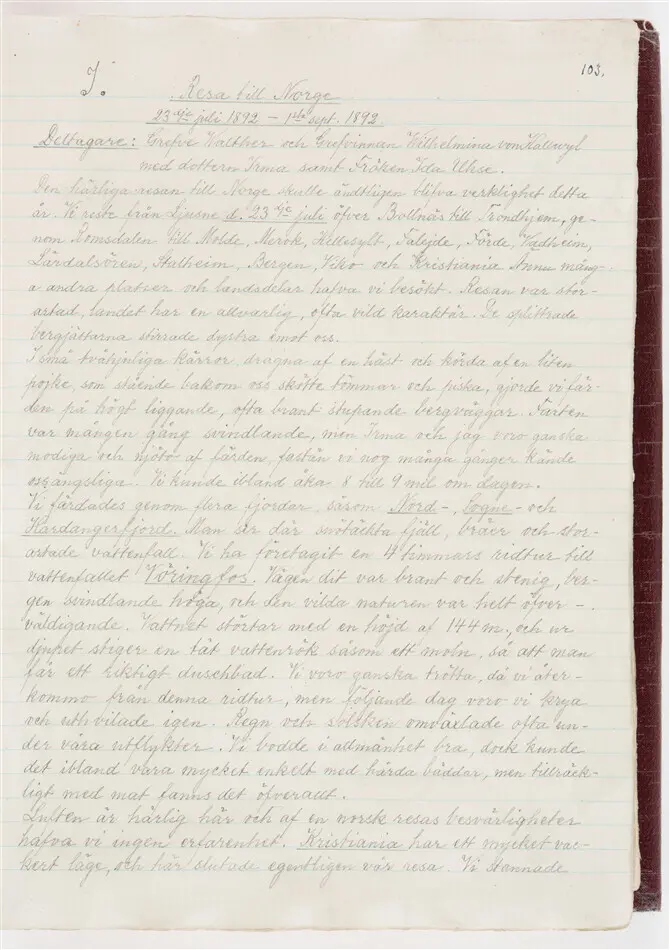 103.
I.
Resa till Norge
23dje juli 1892 – 1sta sept. 1892.
Deltagare: Grefve Walther och Grefvinnan Wilhelmina von Hallwyl
med dottern Irma samt Fröken Ida Uhse.
Den härliga resan till Norge skulle ändtligen blifva verklighet detta
år. Vi reste från Ljusne d. 23dje juli öfver Bollnäs till Trondhjem, ge-
nom Romsdalen till Molde, Merok, Hellesylt, Falejde, Förde, Vadheim,
Lärdalsören, Stalheim, Bergen, Viko och Kristiania. Ännu mång-
a andra platser och landsdelar hafva vi besökt. Resan var stor-
artad, landet har en allvarlig, ofta vild karaktär. De splittrade
bergjättarna stirrade dystra emot oss.
I små tvåhjuliga kärror, dragna af en häst och körda af en liten
pojke, som stående bakom oss skötte tömmar och piska, gjorde vi fär-
den på högt liggande, ofta brant stupande bergväggar. Farten
var mången gång svindlande, men Irma och jag voro ganska
modiga och njöto af färden, fastän vi nog många gånger kände
oss ängsliga. Vi kunde ibland åka 8 till 9 mil om dagen.
Vi färdades genom flera fjordar, såsom Nord-, Sogne- och
Hardangerfjord. Man ser där snötäckta fjäll, bräer och stor-
artade vattenfall. Vi ha företagit en 4 timmars ridtur till
vattenfallet Vöringfos. Vägen dit var brant och stenig, ber-
gen svindlande höga, och den vilda naturen var helt öfver-
väldigande. Vattnet störtar med en höjd af 144 m., och ur
djupet stiger en tät vattenrök såsom ett moln, så att man
får ett riktigt duschbad. Vi voro ganska trötta, då vi åter-
kommo från denna ridtur, men följande dag voro vi krya
och uthvilade igen. Regn och solsken omväxlade ofta un-
der våra utflykter. Vi bodde i allmänhet bra, dock kunde
det ibland vara mycket enkelt med hårda bäddar, men tillräck-
ligt med mat fanns det öfverallt.
Luften är härlig här och af en norsk resas besvärligheter
hafva vi ingen erfarenhet. Kristiania har ett mycket vac-
kert läge, och här slutade egentligen vår resa. Vi stannade